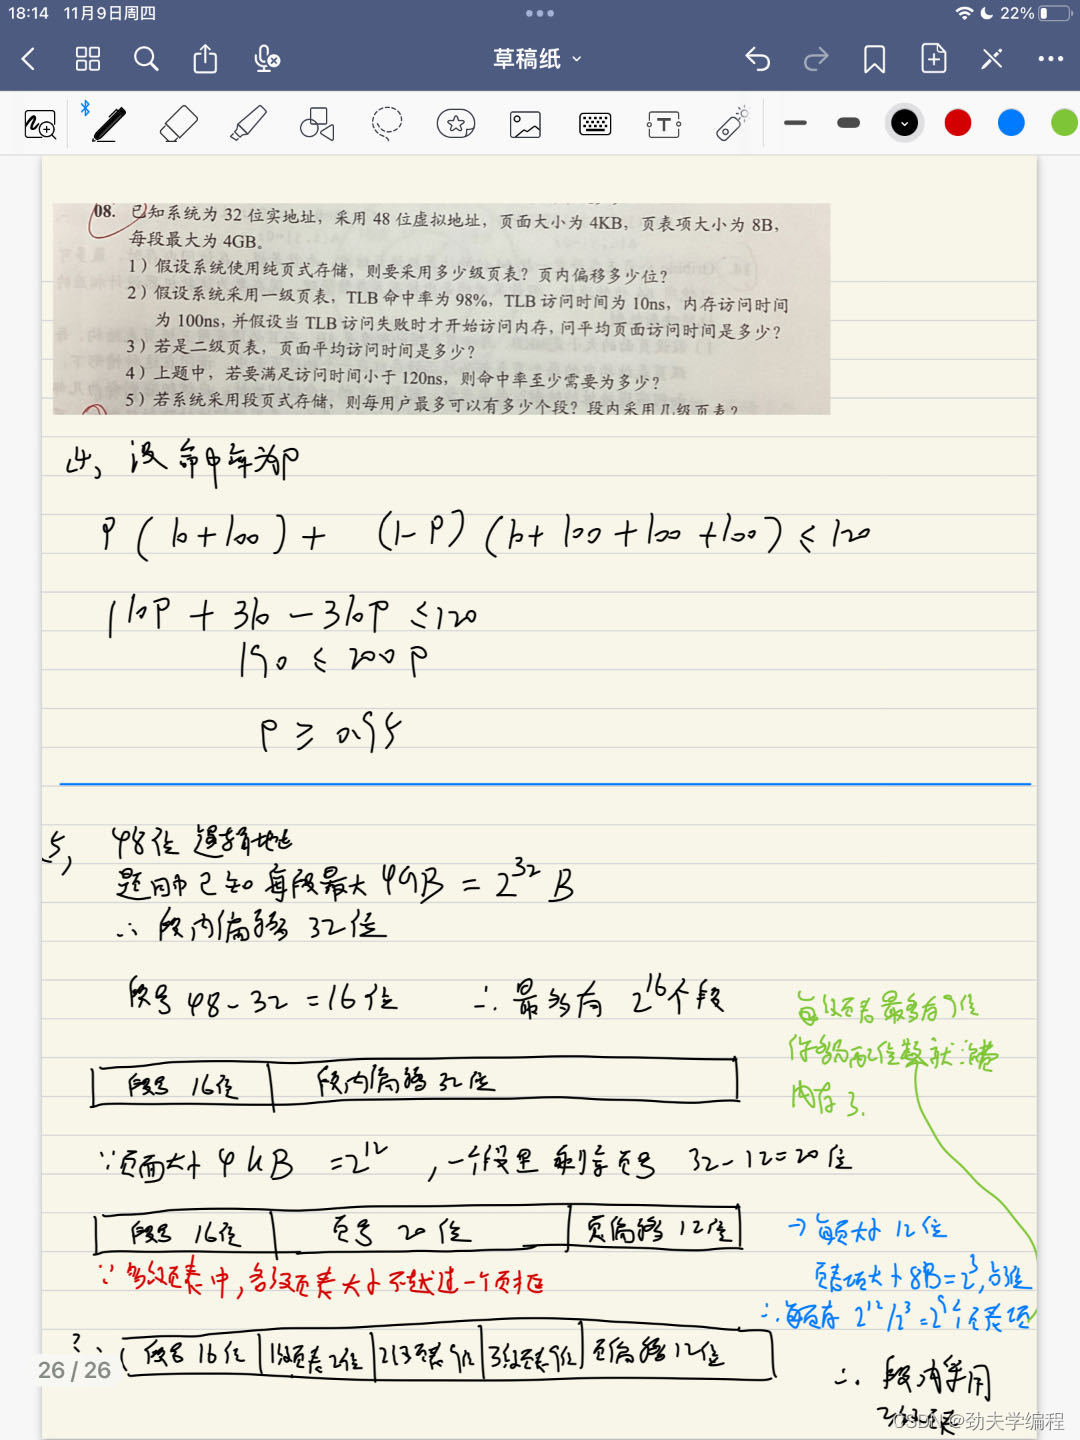 18:14 11月9日周四
22%
草稿纸
08. 已知系统为 32 位实地址，采用 48 位虚拟地址，页面大小为 4KB，页表项大小为 8B，
每段最大为 4GB。
1）假设系统使用纯页式存储，则要采用多少级页表？页内偏移多少位？
2）假设系统采用一级页表，TLB 命中率为 98%，TLB 访问时间为 10ns，内存访问时间
为 100ns，并假设当 TLB 访问失败时才开始访问内存，问平均页面访问时间是多少？
3）若是二级页表，页面平均访问时间是多少？
4）上题中，若要满足访问时间小于 120ns，则命中率至少需要为多少？
5）若系统采用段页式存储，则每用户最多可以有多少个段？段内采用几级页表？
4、设命中率为P
P(10+100)+(1-P)(10+100+100+100)≤120
110P+310-310P≤120
190≤200P
P≥0.95
5、48位逻辑地址
题目中已知每段最大4GB=2^32 B
∴段内偏移32位
段号48-32=16位 ∴最多有2^16个段
每级页表最多有9位
你多分配位数就浪费
内存了.
段号 16位 段内偏移 32位
∵页面大小4KB=2^12,一个段里剩余页号 32-12=20位
段号 16位 页号 20位 页偏移 12位
→每页大小 12位
∵多级页表中,各级页表大小不超过一个页框
页表项大小8B=2^3,
∴每页存 2^12/2^3=2^9个页表项
段号16位 1级页表2位 2级页表9位 3级页表9位 页偏移12位
26 / 26
∴段内采用
CSDN @劲夫学编程